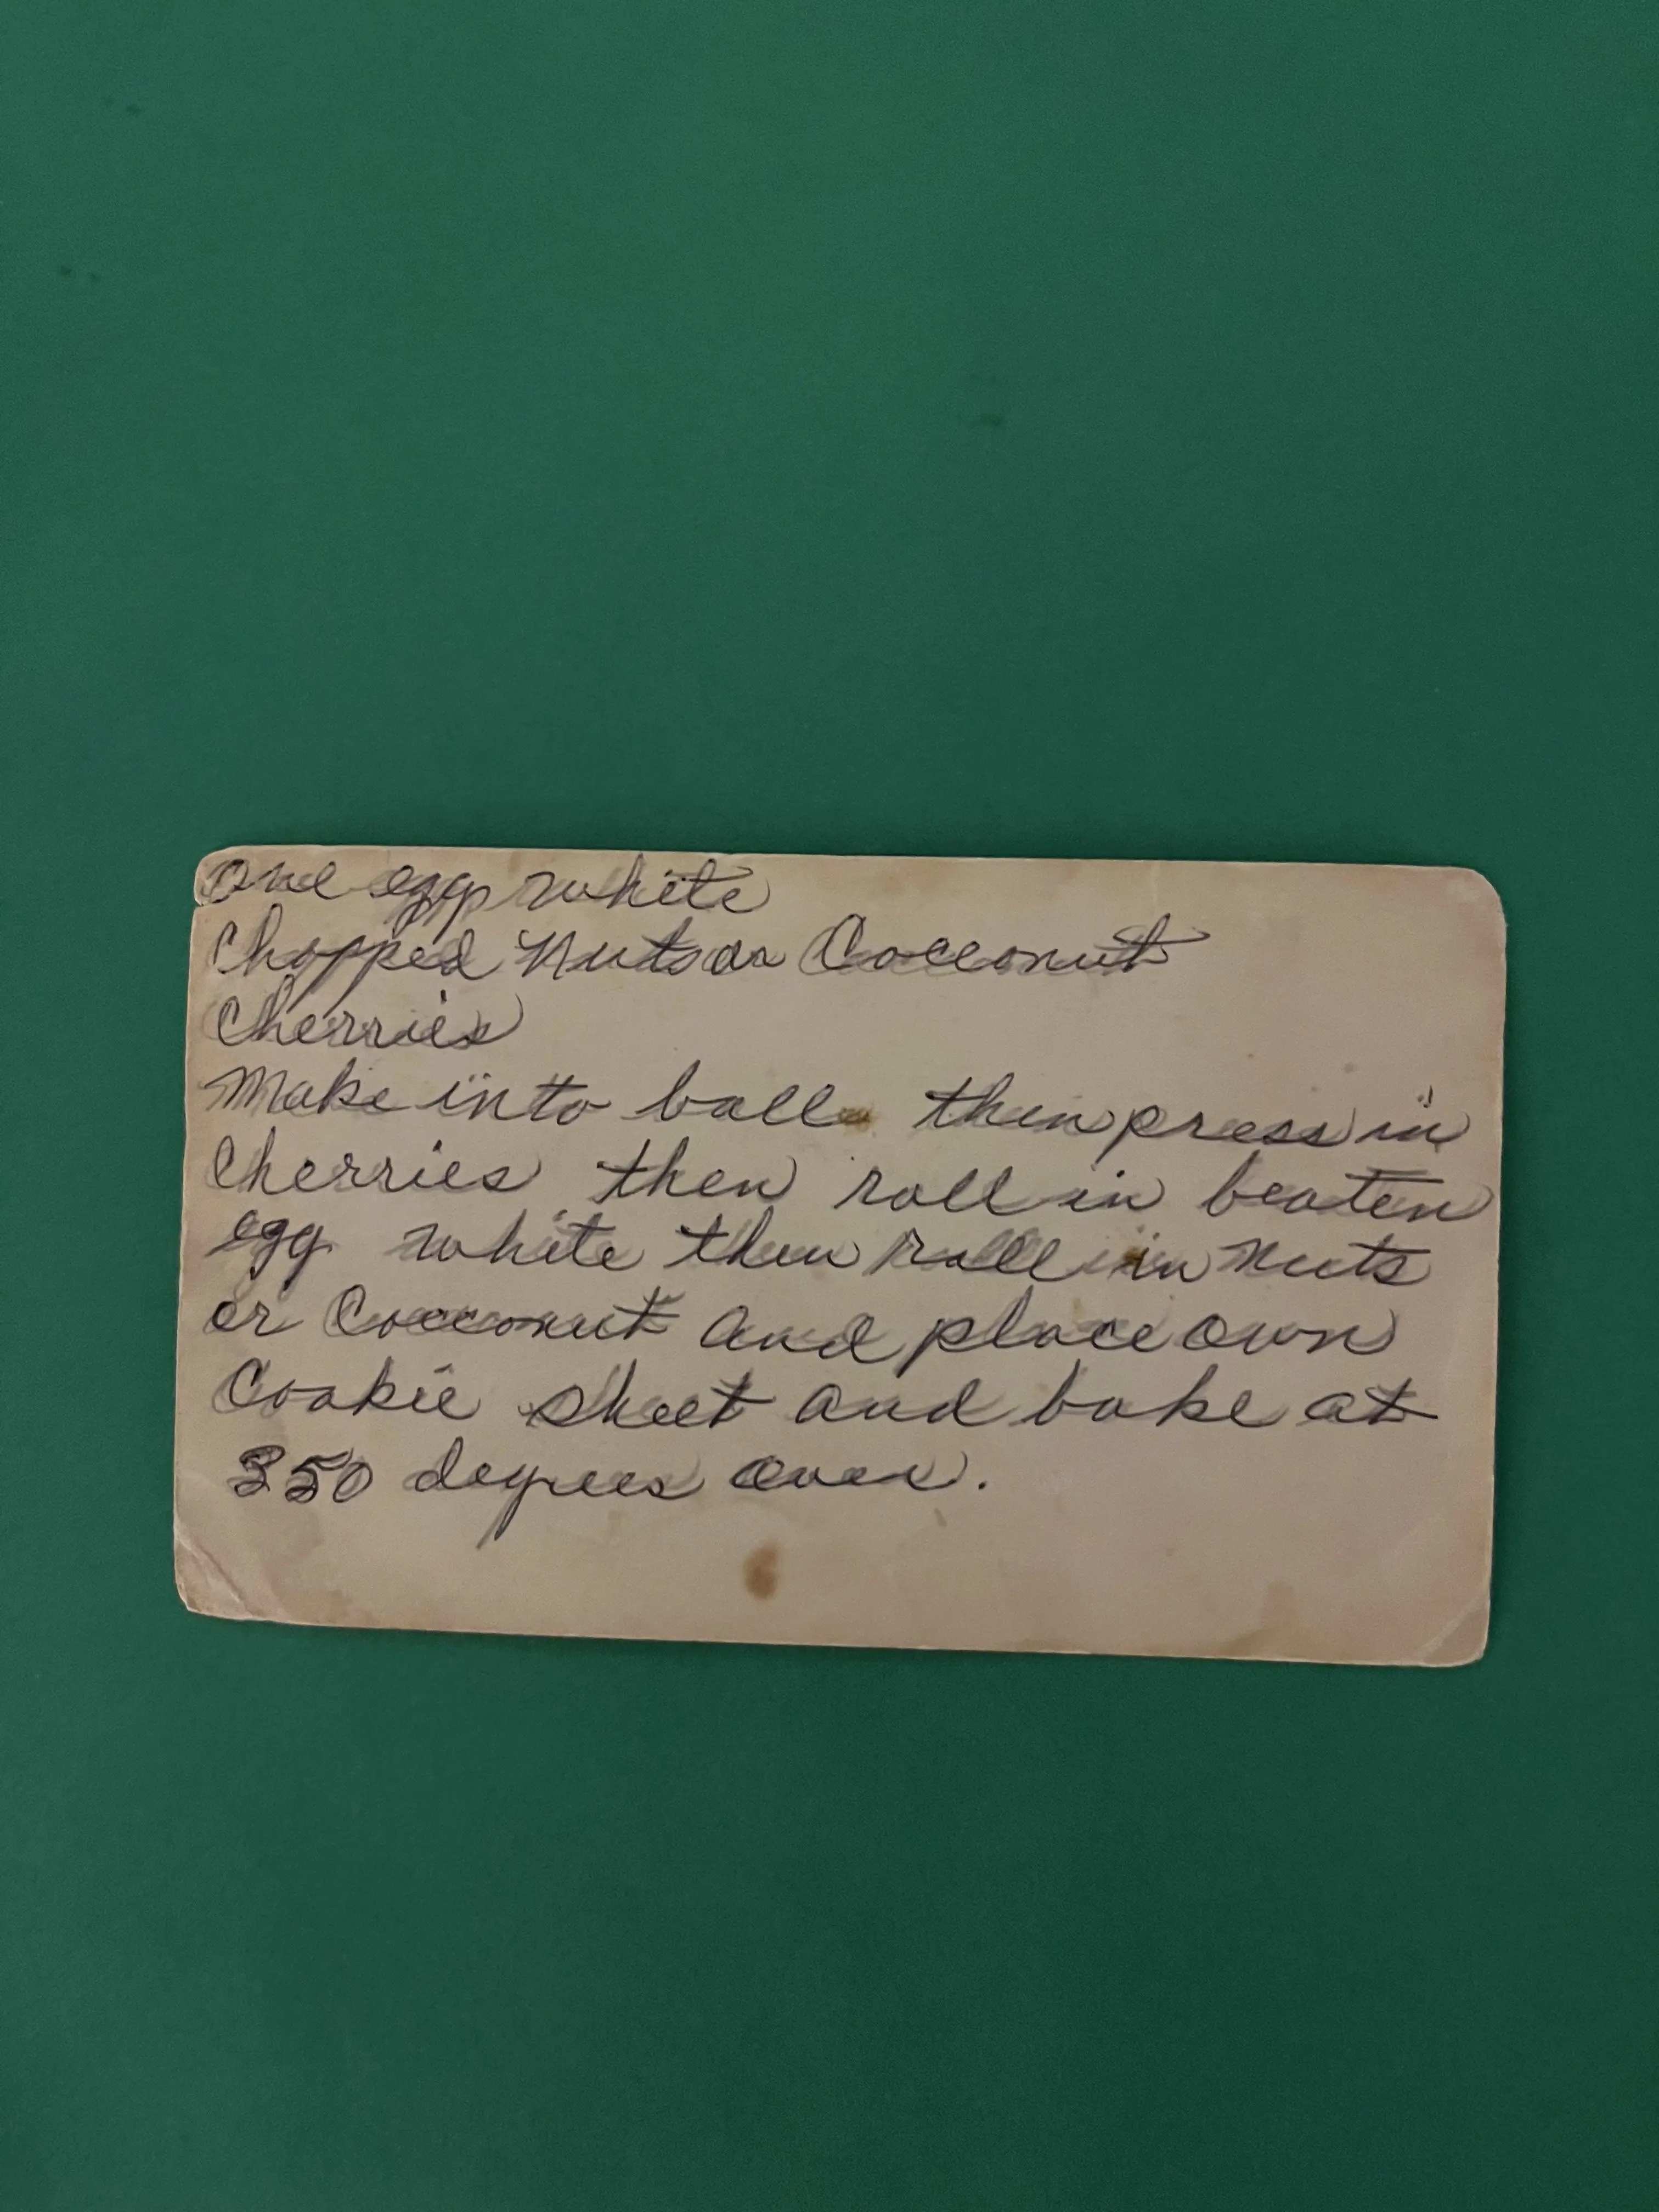 one egg white
Chopped Nuts or Cocconut
Cherries
Make into ball then press in
Cherries then roll in beaten
egg white then roll in nuts
or Cocconut and place own
Cookie sheet and bake at
350 degrees oven.